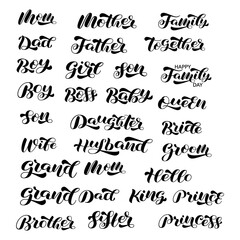 Mom Mother Family
Dad Father Together
Boy Girl Son HAPPY Family DAY
Boy Boss Baby Queen
Son Daughter Bride
Wife Husband Groom
Grand Mom Hello
Grand Dad King Prince
Brother Sister Princess